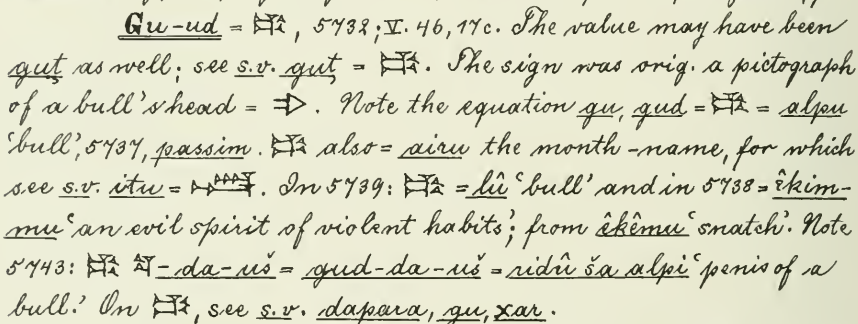 Gu-ud = 𒄞, 5732; V. 46, 17c. The value may have been
guṭ as well; see s.v. guṭ = 𒄞. The sign was orig. a pictograph
of a bull's head = . Note the equation gu, gud = 𒄞 = alpu
'bull', 5737, passim. 𒄞 also = airu the month-name, for which
see s.v. itu = 𒌗. In 5739: 𒄞 = lû 'bull' and in 5738 = êkim-
mu 'an evil spirit of violent habits'; from êkêmu 'snatch'. Note
5743: 𒄞 -da-uš = gud-da-uš = ridû ša alpi 'penis of a
bull.' On 𒄞, see s.v. dapara, gu, xar.